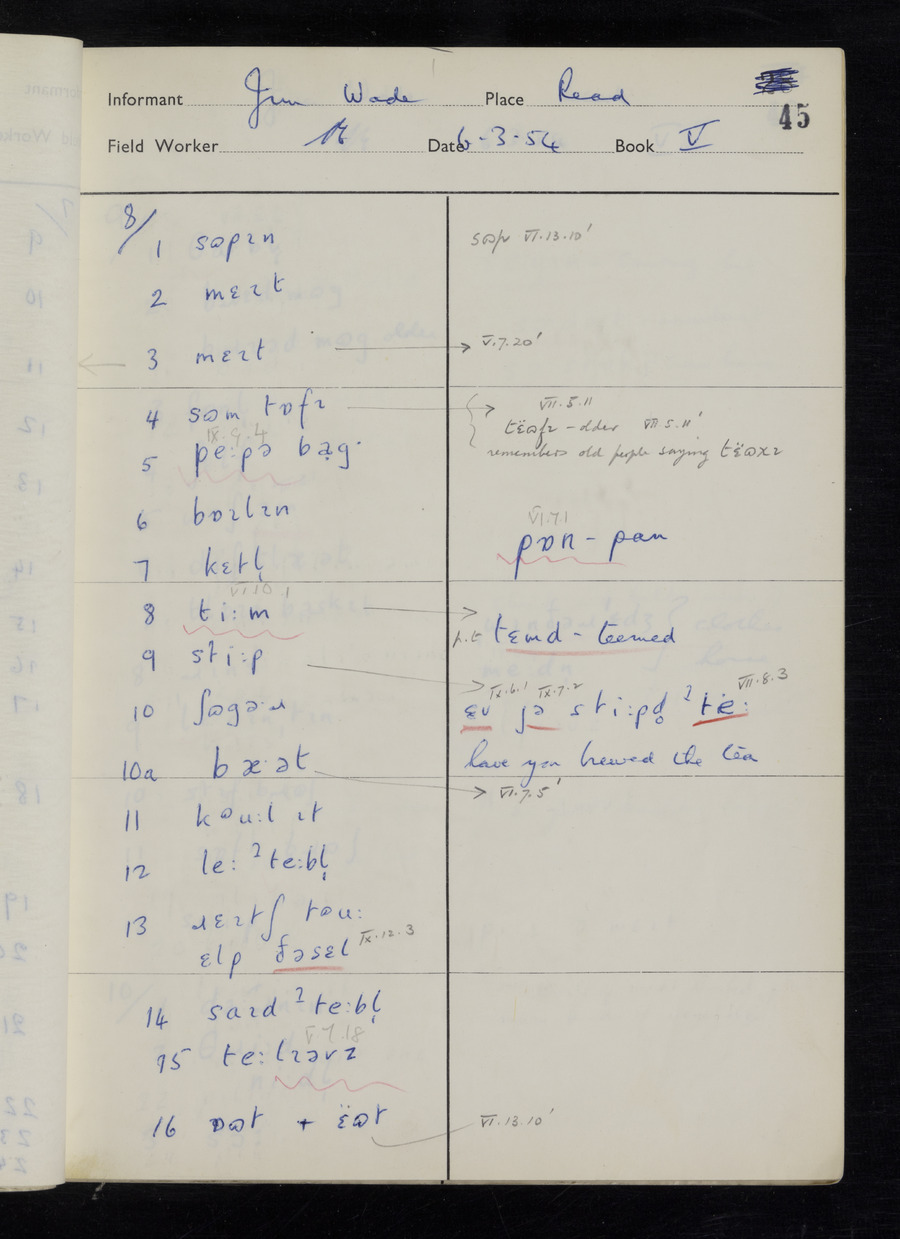 Informant Jim Wade Place Read
45
Field Worker Date 6-3-54 Book V
8/
1 sɷpɪn sɷp VI.13.10'
2 mɛɪt
3 mɛɪt V.7.20'
4 sɷm tɒfɪ VII.5.11
tɛ̈ɷfɪ - older VII.5.11'
IX.9.4
5 pe:pə bạg· remembers old people saying tɛ̈ɷxɪ
6 bɒɪlɪn
VI.7.1
pɒn - pan
7 kɛtl̩
VI.10.1
8 ti:m p.t. tɛmd - teemed
9 sti:p
IX.6.1 IX.7.2 VII.8.3
10 ʃɷgə·ɹ ɛv jə sti:pd̥ ʔtë:
10a bæ·ət have you brewed the tea
VI.7.5'
11 kɷu:l ɪt
12 le: ʔte:bl̩
13 ɹɛɪtʃ tɷu:
ɛlp ðəsɛl IX.12.3
14 saɪd ʔte:bl̩
V.7.18
15 te:lɪəvz
16 ɒɷt + ɛ̈ɷt VI.13.10'